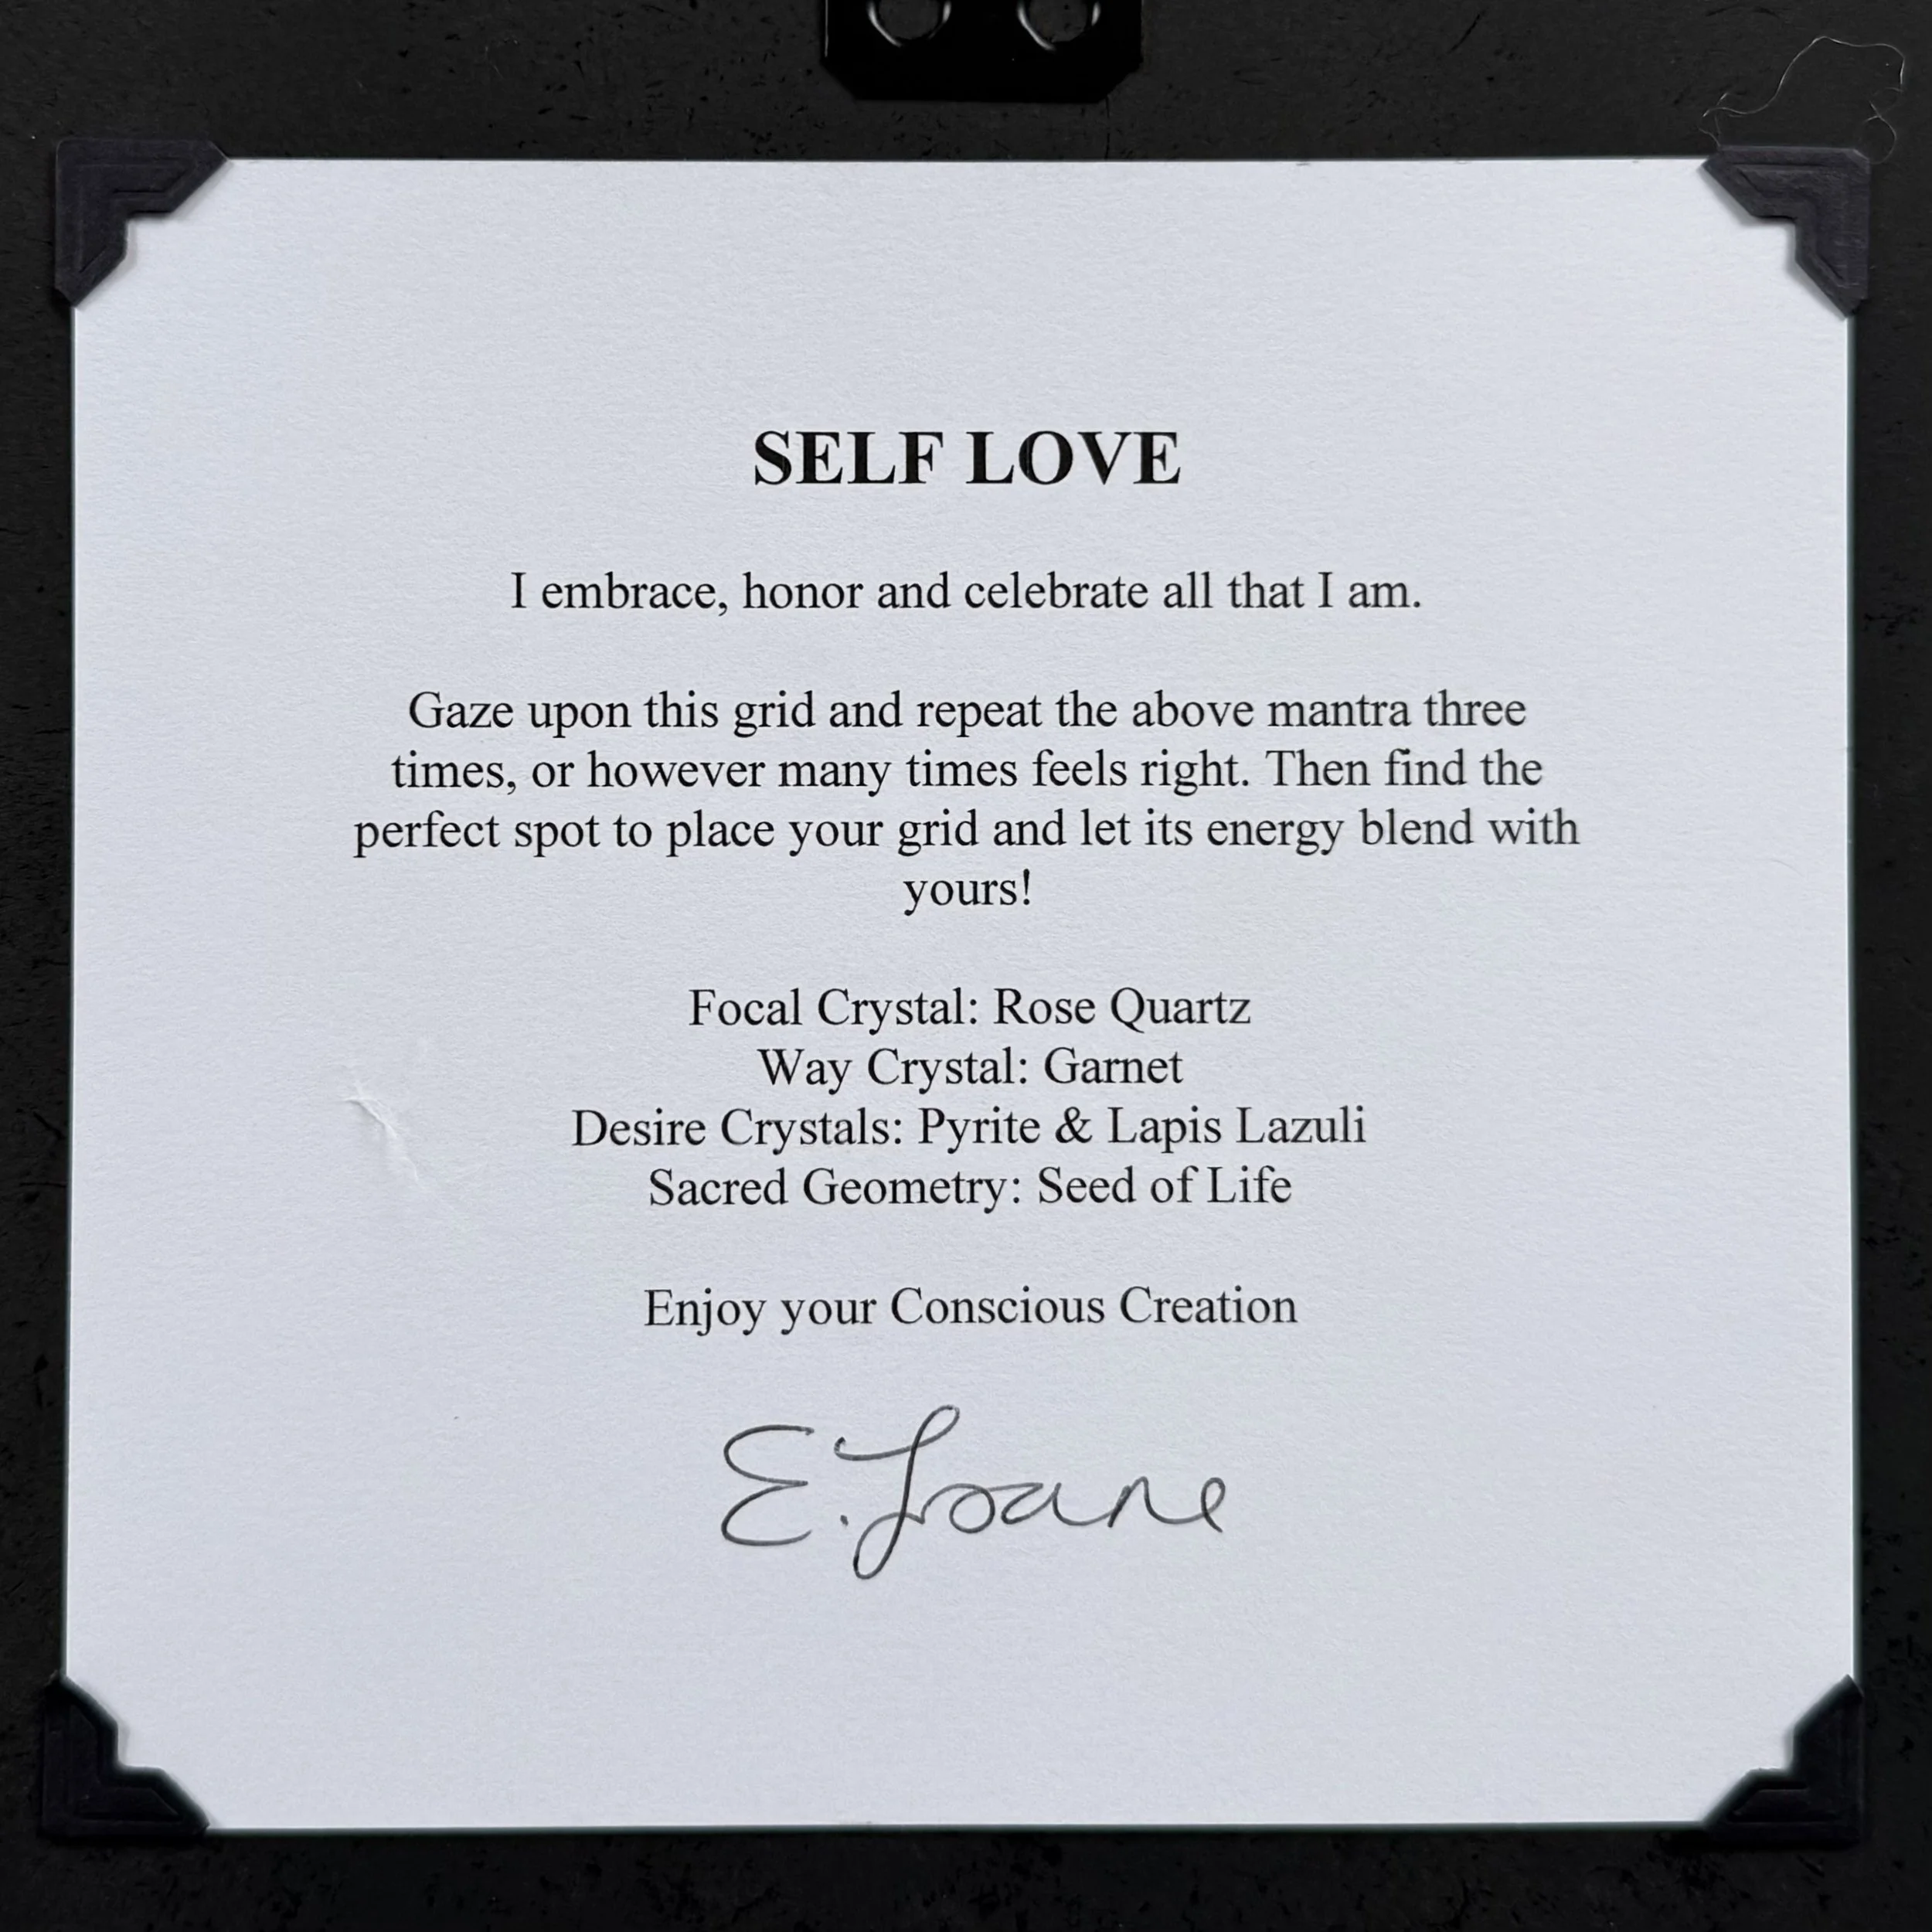 SELF LOVE
I embrace, honor and celebrate all that I am.
Gaze upon this grid and repeat the above mantra three
times, or however many times feels right. Then find the
perfect spot to place your grid and let its energy blend with
yours!
Focal Crystal: Rose Quartz
Way Crystal: Garnet
Desire Crystals: Pyrite & Lapis Lazuli
Sacred Geometry: Seed of Life
Enjoy your Conscious Creation
E. Loane